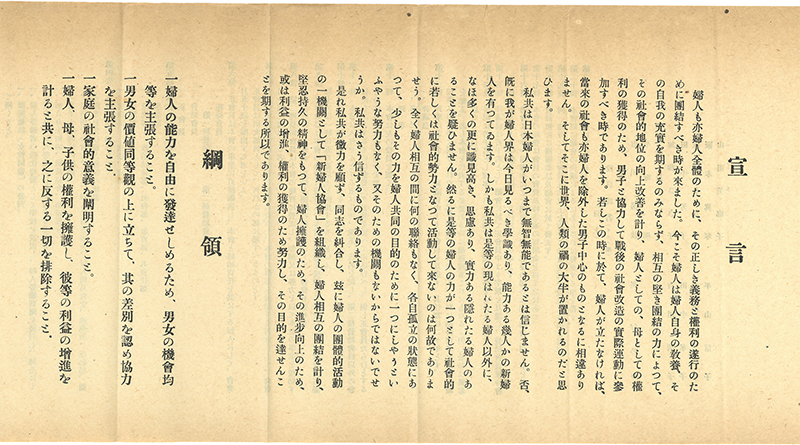 宣言
婦人も亦婦人全體のために、その正しき義務と權利の遂行のた
めに團結すべき時が來ました。今こそ婦人は婦人自身の敎養、そ
の自我の充實を期するのみならず、相互の堅き團結の力によつて、
その社會的地位の向上改善を計り、婦人としての、母としての權
利の獲得のため、男子と協力して戰後の社會改造の實際運動に參
加すべき時であります。若しこの時に於て、婦人が立たなければ、
當來の社會も亦婦人を除外した男子中心のものとなるに相違あり
ません。そしてそこに世界、人類の禍の大半が置かれるのだと思
ひます。
私共は日本婦人がいつまで無智無能であるとは信じません。否、
既に我が婦人界は今日見るべき學識あり、能力ある幾人かの新婦
人を有つてゐます。しかも私共は是等の現はれたる婦人以外に、
なほ多くの更に識見高き、思慮あり、實力ある隱れたる婦人のあ
ることを疑ひません。然るに是等の婦人の力が一つとして社會的
に若しくは社會的勢力となつて活動して來ないのは何故でありま
せう。全く婦人相互の間に何の聯絡もなく、各自孤立の狀態にあ
つて、少しもその力を婦人共同の目的のために一つにしやうとい
ふやうな努力もなく、又そのための機關もないからではないでせ
うか。私共はさう信ずるものであります。
是れ私共が微力を顧ず、同志を糾合し、玆に婦人の團體的活動
の一機關として「新婦人協會」を組織し、婦人相互の團結を計り、
堅忍持久の精神をもつて、婦人擁護のため、その進步向上のため、
或は利益の增進、權利の獲得のため努力し、その目的を達せんこ
とを期する所以であります。
綱領
一婦人の能力を自由に發達せしめるため、男女の機會均
等を主張すること。
一男女の價値同等觀の上に立ちて、其の差別を認め協力
を主張すること。
一家庭の社會的意義を闡明すること。
一婦人、母、子供の權利を擁護し、彼等の利益の增進を
計ると共に、之に反する一切を排除すること。